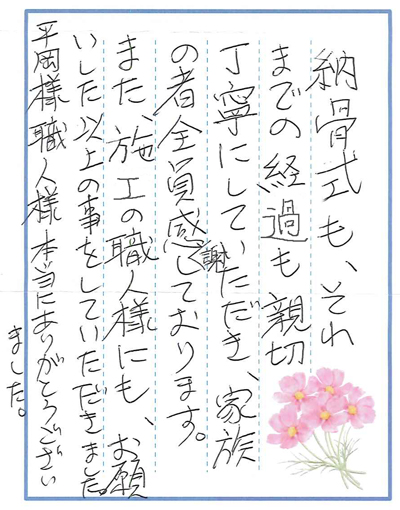 納骨式も、それ
までの経過も親切
丁寧にしていただき、家族
の者全員感謝しております。
また、施工の職人様にも、お願
いした以上の事をしていただきました。
平岡様職人様本当にありがとうござい
ました。